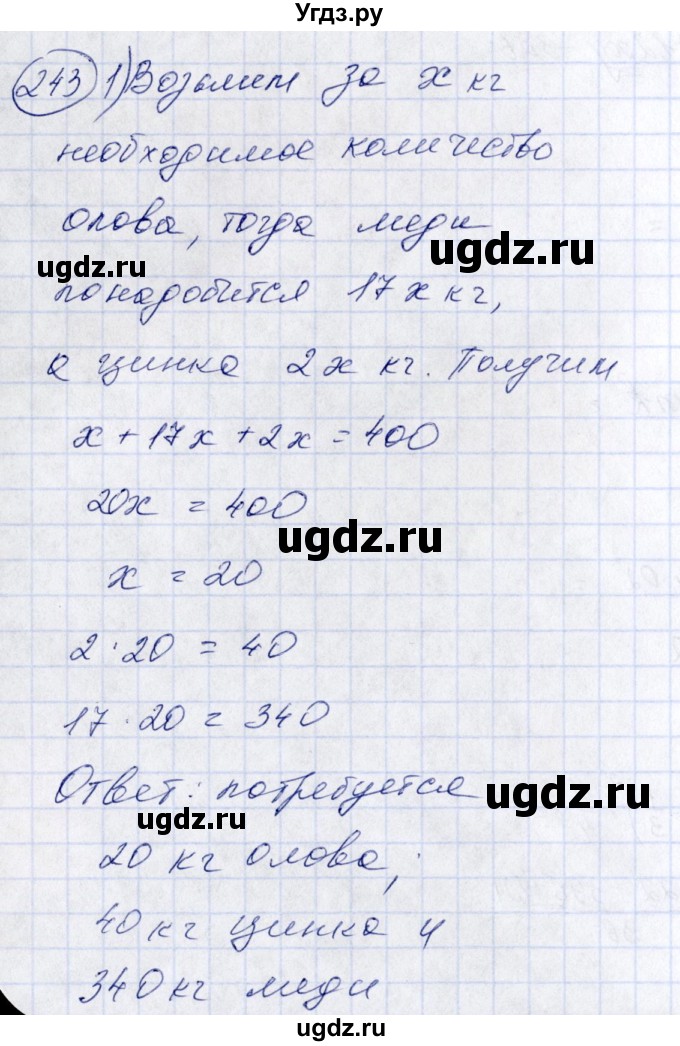 Угдз.ру
243 1) Возьмем за x кг
необходимое количество
олова, тогда меди
ugdz.ru ugdz.ru
понадобится 17x кг,
а цинка 2x кг. Получим
x + 17x + 2x = 400
20x = 400
ugdz.ru
x = 20
2 · 20 = 40
17 · 20 = 340
Ответ: потребуется
ugdz.ru ugdz.ru
20 кг олова,
40 кг цинка и
340 кг меди
ugdz.ru